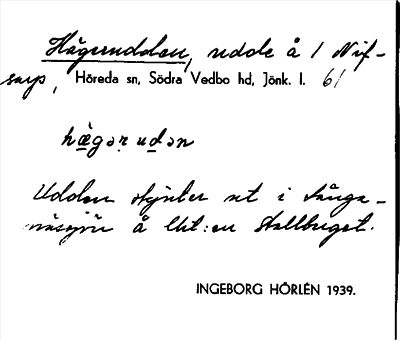 Hägerudden, udde å 1 Nif-
sarp, Höreda sn, Södra Vedbo hd, Jönk. l. 61
hägər udən
Udden skjuter ut i Långa-
näsasjön å Utt:en Stallhuget.
INGEBORG HÖRLÉN 1939.